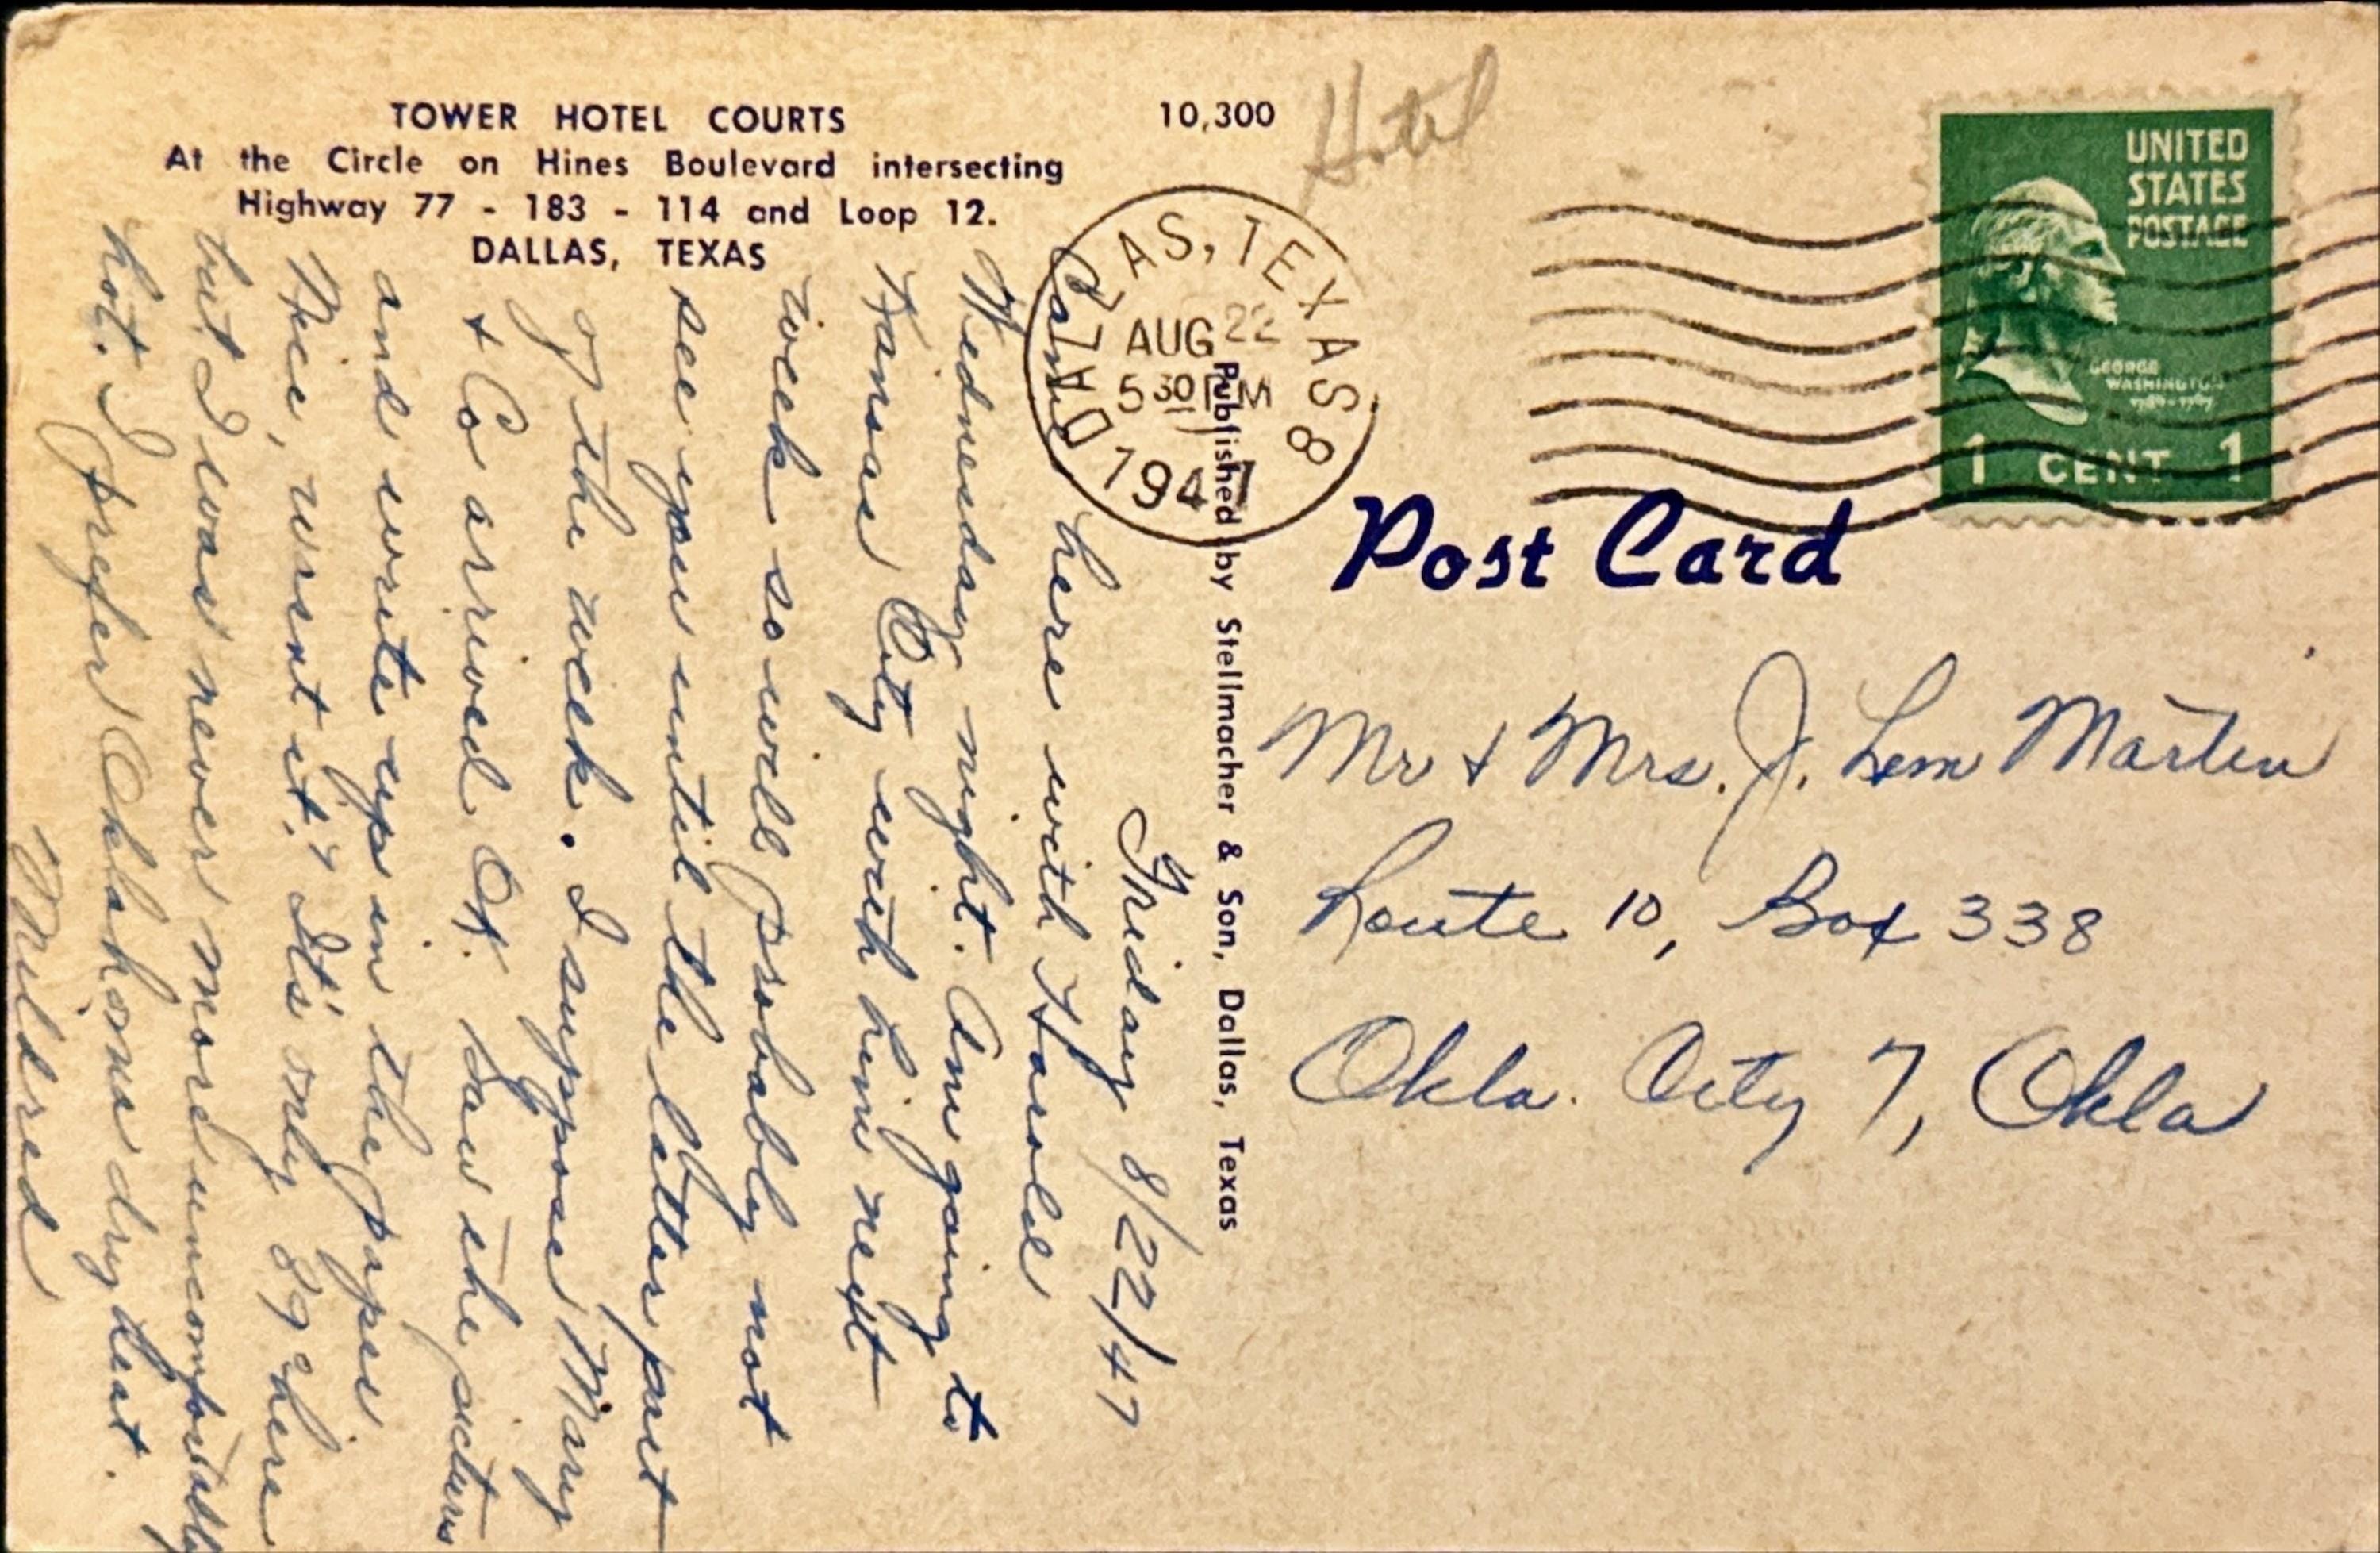 TOWER HOTEL COURTS
At the Circle on Hines Boulevard intersecting
Highway 77 - 183 - 114 and Loop 12.
DALLAS, TEXAS
10,300
Hotel
DALLAS, TEXAS 8
AUG 22
5 30 PM
1947
UNITED
STATES
POSTAGE
GEORGE
WASHINGTON
1789-1797
1 CENT 1
Post Card
Published by Stellmacher & Son, Dallas, Texas
Friday 8/22/47
Came here with Harold
Wednesday night. Am going to
Kansas City with him next
week so will probably not
see you until the latter part
of the week. I suppose Mary
& Co arrived OK. Saw the pictures
and write ups in the paper
Nice, wasn't it." It's only 89° here
but I was never more uncomfortably
hot. I prefer Oklahoma dry heat.
Mildred
Mr & Mrs. J. Lem Martin
Route 10, Box 338
Okla. City 7, Okla